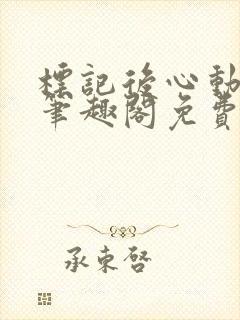 標記後心動
筆趣閣免費
承東啓